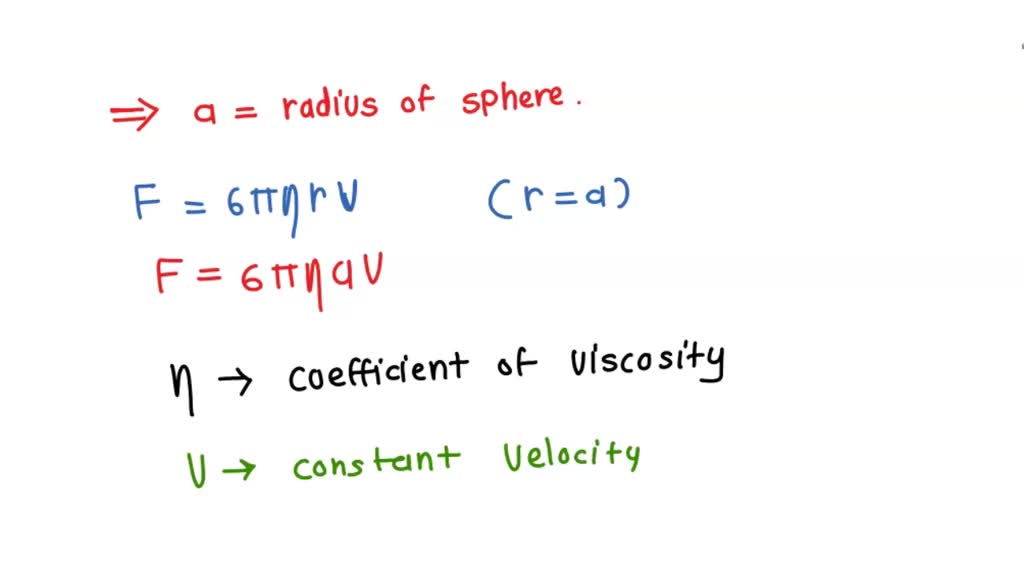 ⇒ a = radius of sphere.
F = 6πηrv (r=a)
F = 6πηav
η → coefficient of viscosity
v → constant velocity